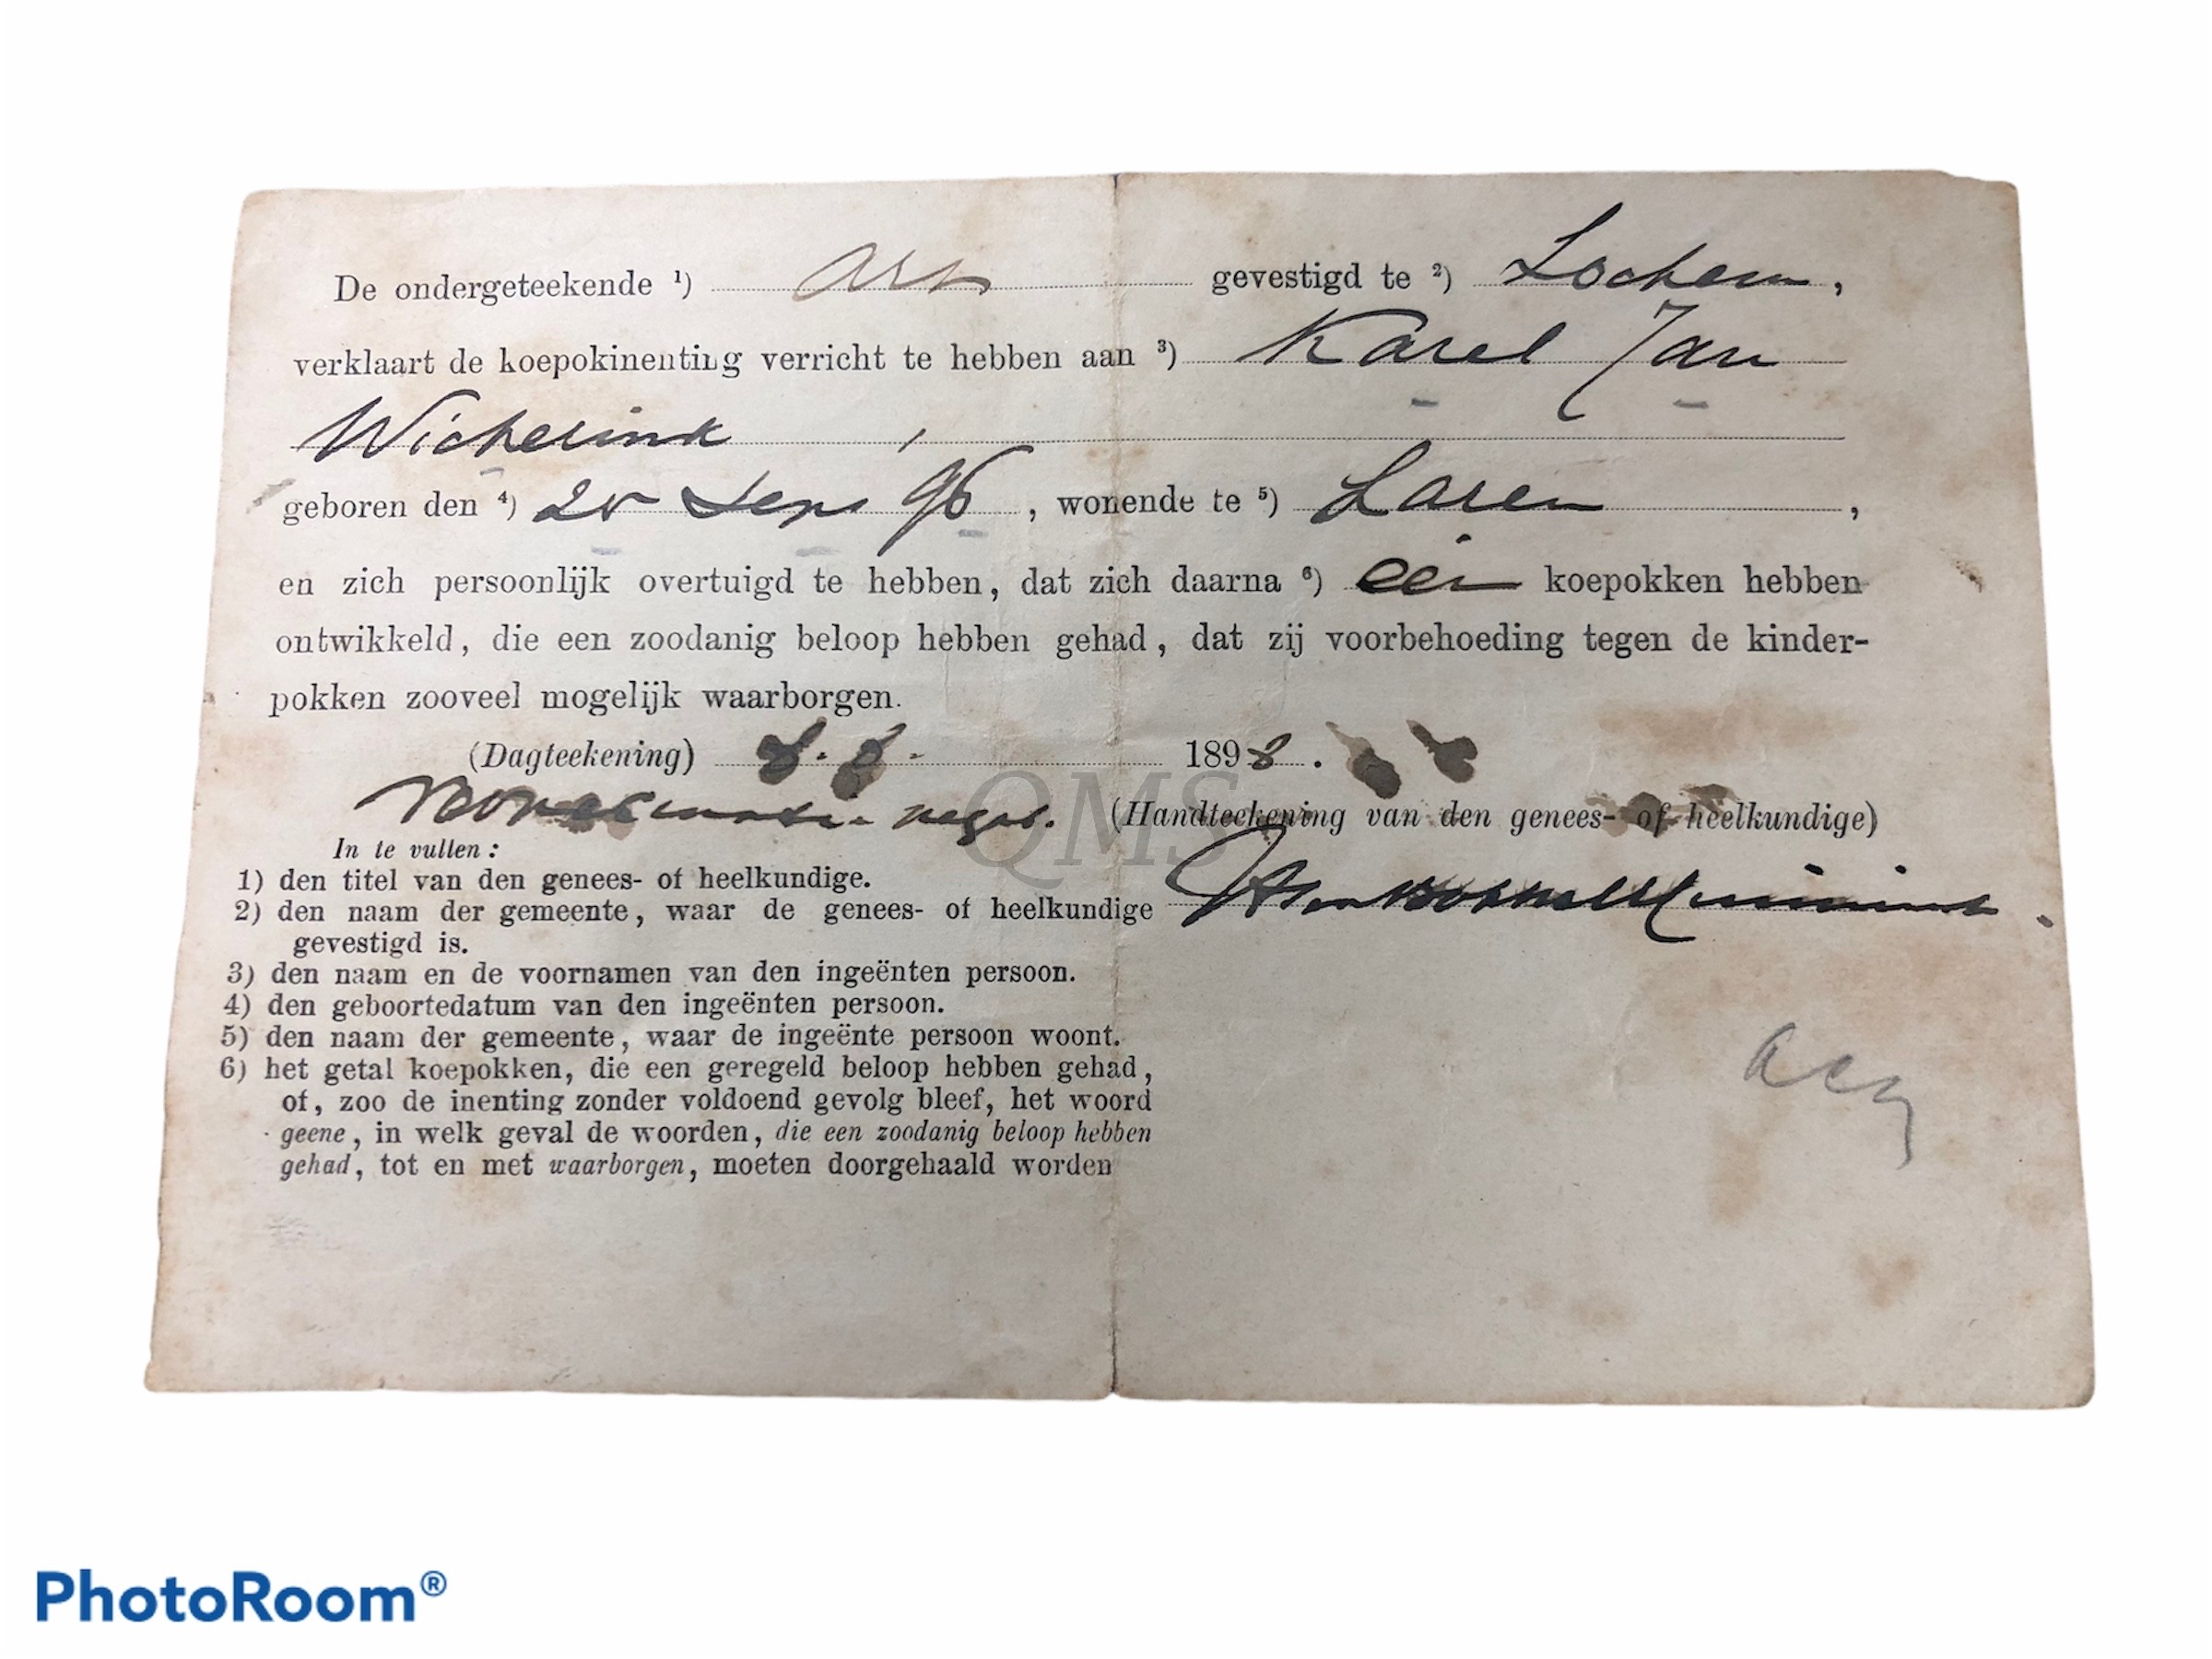 De ondergeteekende ¹) Arts gevestigd te ²) Lochem,
verklaart de koepokinenting verricht te hebben aan ³) Karel Jan
Wicherink,
geboren den ⁴) 96, wonende te ⁵) Laren,
en zich persoonlijk overtuigd te hebben, dat zich daarna ⁶) één koepokken hebben
ontwikkeld, die een zoodanig beloop hebben gehad, dat zij voorbehoeding tegen de kinder-
pokken zooveel mogelijk waarborgen.
(Dagteekening) 8.8. 1898.
(Handteekening van den genees- of heelkundige)
In te vullen:
1) den titel van den genees- of heelkundige.
2) den naam der gemeente, waar de genees- of heelkundige
gevestigd is.
3) den naam en de voornamen van den ingeënten persoon.
4) den geboortedatum van den ingeënten persoon.
5) den naam der gemeente, waar de ingeënte persoon woont.
6) het getal koepokken, die een geregeld beloop hebben gehad,
of, zoo de inenting zonder voldoend gevolg bleef, het woord
geene, in welk geval de woorden, die een zoodanig beloop hebben
gehad, tot en met waarborgen, moeten doorgehaald worden
QMS
PhotoRoom®